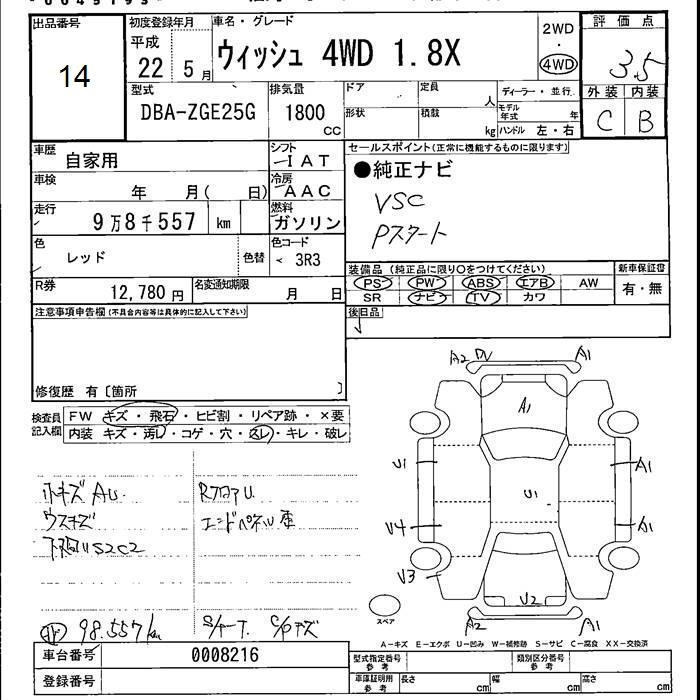 出品番号 初度登録年月 車名・グレード 評価点
14 平成 22年 5月 ウィッシュ 4WD 1.8X 2WD・4WD 3.5
外装 内装
C B
型式 排気量 ドア 定員 人 ディーラー・並行
DBA-ZGE25G 1800 CC 形状 積載 kg モデル年式 年
ハンドル 左・右
車歴 自家用 シフト IAT セールスポイント(正常に機能するものに限ります)
車検 年 月( 日) 冷房 AAC ●純正ナビ
走行 9万8千557 km 燃料 ガソリン VSC
Pスタート
色 レッド 色替 色コード < 3R3
装備品(純正品に限り○をつけてください) 新車保証書
R券 12,780円 名変通知期限 月 日 PS PW ABS エアB AW 有・無
SR ナビ TV カワ
注意事項申告欄(不具合内容等は具体的に記入して下さい) 後日品
修復歴 有〔箇所 〕
検査員記入欄 FW キズ・飛石・ヒビ割・リペア跡・×要
内装 キズ・汚レ・コゲ・穴・スレ・キレ・破レ
A2 A1
A1
U1 U1 A1
U4 A1
U3 U2
A2 A1
小キズAU RフロアU
ウスキズ エンドパネル
スペア
98.557km
A-キズ E-エクボ U-凹み W-補修跡 S-サビ C-腐食 XX-交換済
車台番号 0008216 型式指定番号 参考 類別区分番号 参考
登録番号 車庫証明用 参考 長さ cm 幅 cm 高さ cm